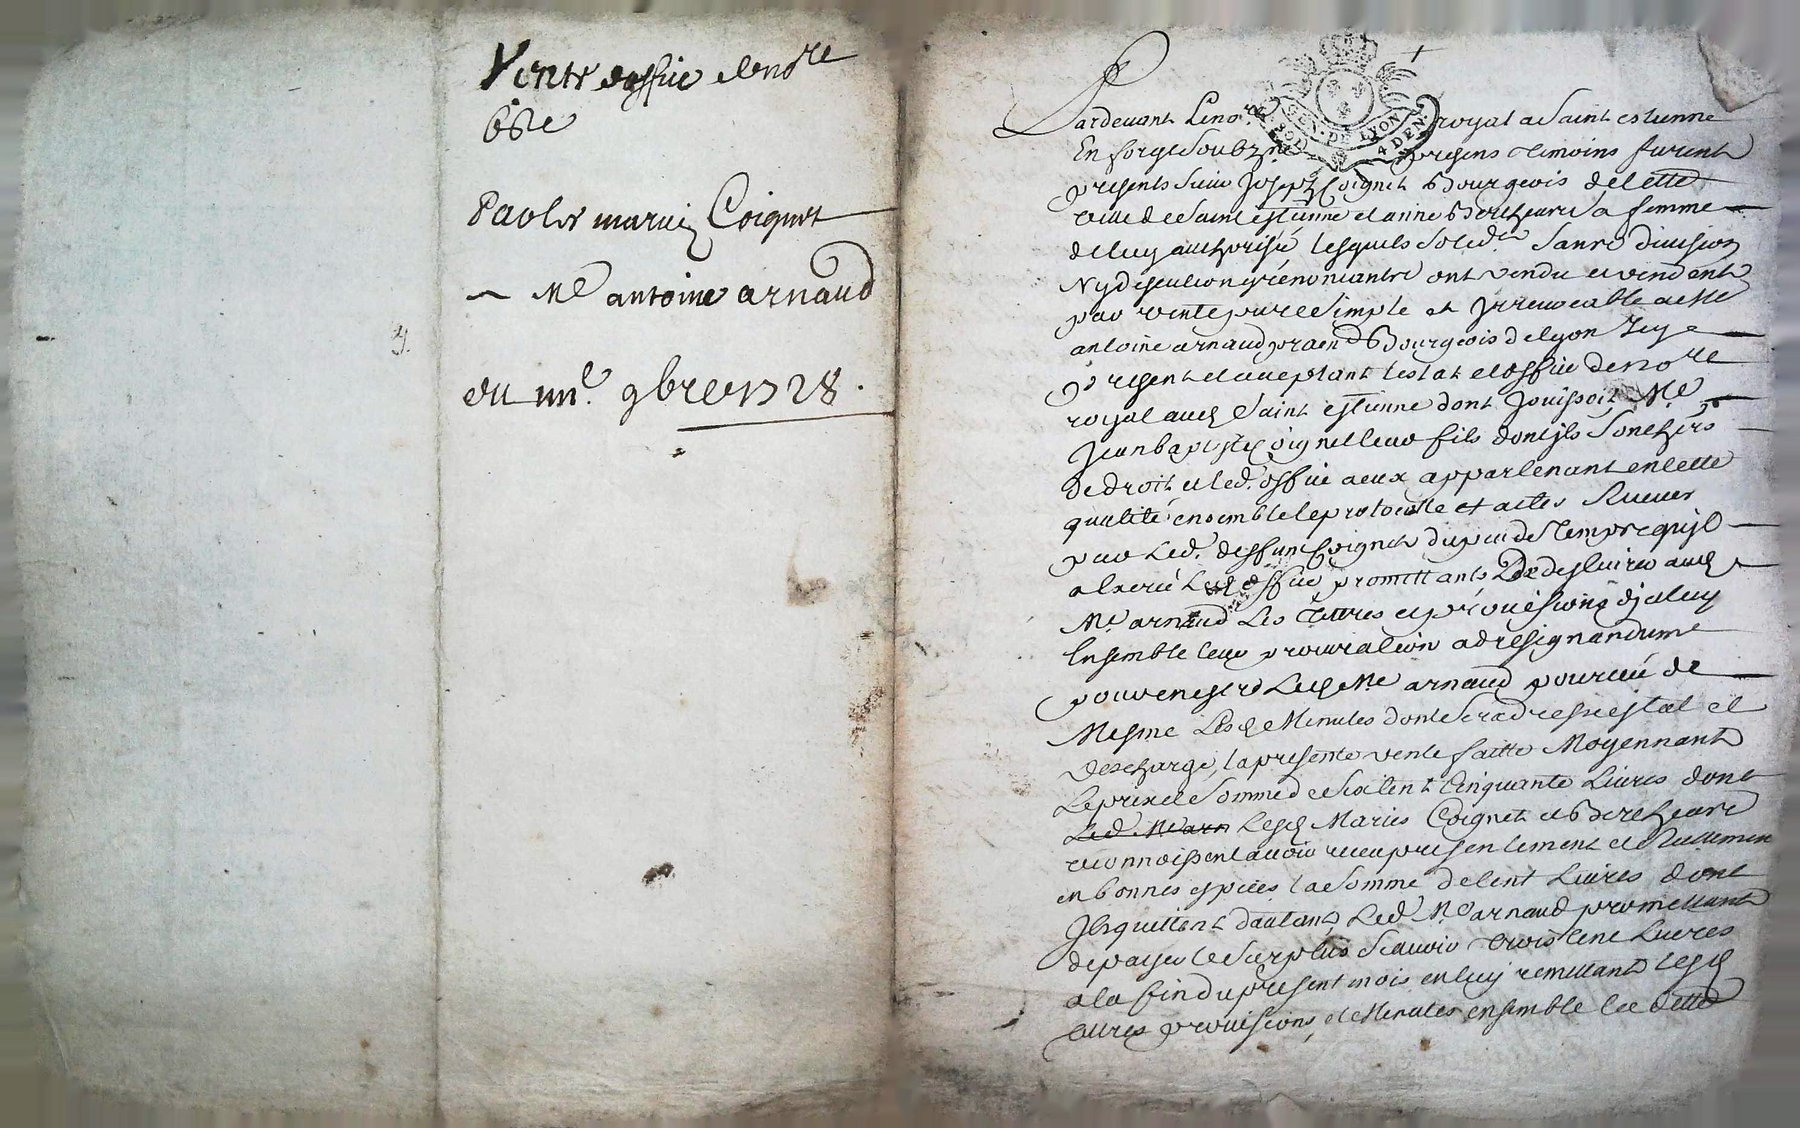 Vente doffice de no.re
650lt
Par les mariez Coignet
a Me antoine arnaud
du iiii.e 9bre 1728.
GEN. DE LYON
4 DEN.
Pardevant Le no.re royal a Saint estienne
En forge Soubzne presens temoins furent
presents Sieur Joseph Coignet Bourgeois de cette
ville de Saint estienne et anne Bercheure Sa femme
de luy authorisée lesquels Solid.t Sans division
Ny discution y renoncantz ont vendu et vendent
par vente pure Simple et Irrevocable a Me
antoine arnaud pratn Bourgeois de lyon Icy
present et aceptant lestat et office de no.re
royal aud Saint estienne dont Jouissoit Me
Jean baptiste Coignet leur fils dont ils Sont hers
de droit et led. office a eux appartenant en cette
qualité ensemble le protocolle et actes Receues
par Led. deffunt Coignet du peu de Temps quil
a Led office promettants de aud
Me arnaud Les Tittres et provisions diceluy
Ensemble leur procuration ad resignandum
pour en estre Led Me arnaud pourveu de
Mesme Lesd Minutes dont Sera dresse estat et
descharge, la presente vente faitte Moyennant
Le prix et Somme de Six Cent Cinquante Livres dont
Led. Me arn Lesd Mariés Coignet et Bercheure
reconnoissent avoir receu presentement et Réellemen
en bonnes especes la Somme de Cent Livres dont
Ils quittent dautant, Led Me arnaud promettant
de payer le Surplus Scavoir trois Cent Livres
a la fin du present mois en luy remettant lesd
tittres provisions, et Minutes ensemble lad